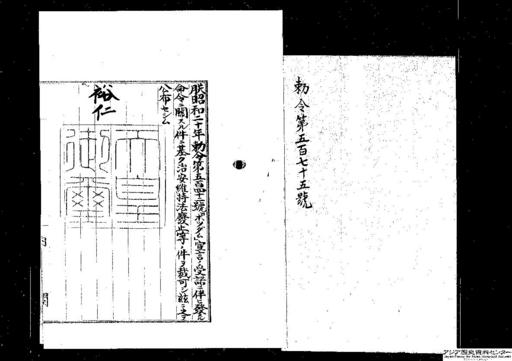 勅令第五百七十五號
朕昭和二十年勅令第五百四十二號ポツダム宣言ノ受諾ニ伴ヒ發スル
命令ニ關スル件ニ基ク治安維持法廢止等ノ件ヲ裁可シ茲ニ之ヲ
公布セシム
裕仁
天皇
御璽
内閣
アジア歴史資料センター